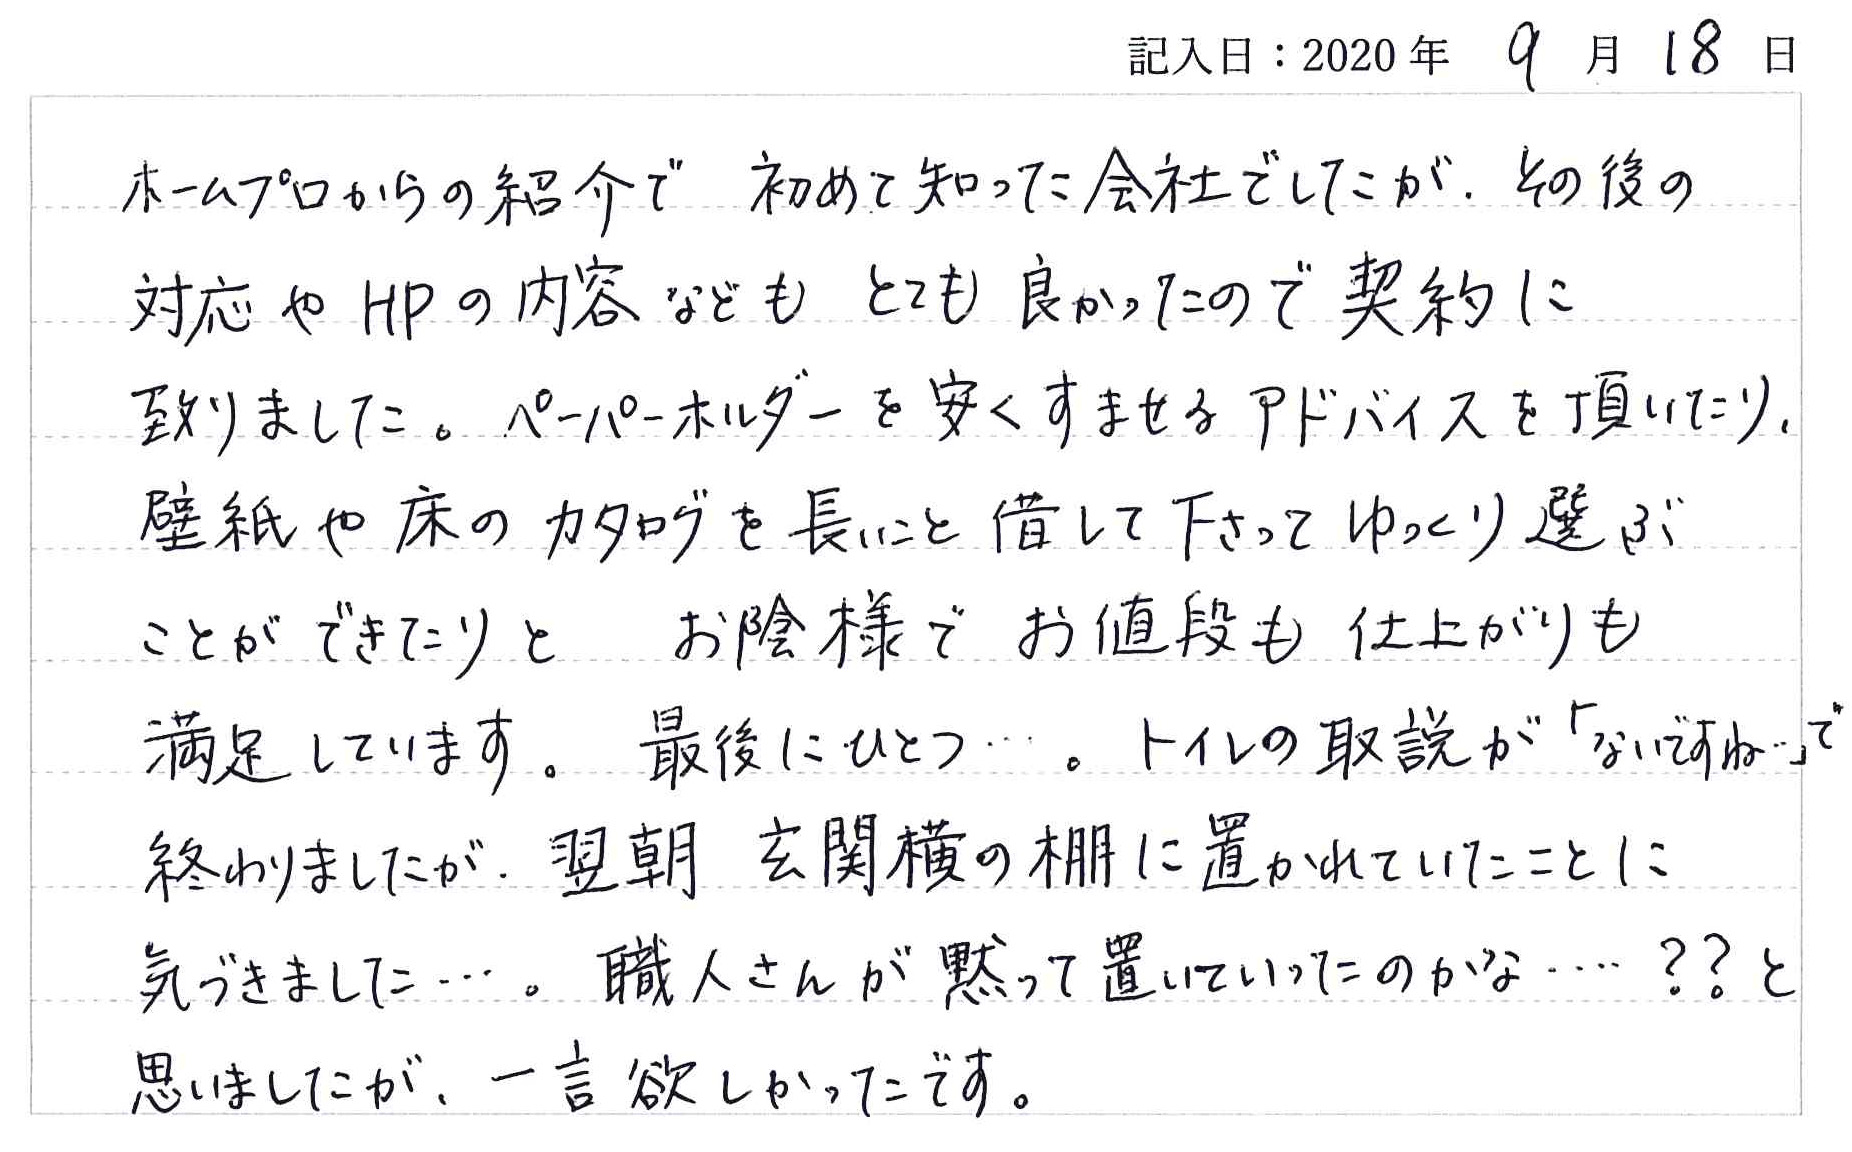 記入日：2020年 9月 18日
ホームプロからの紹介で 初めて知った会社でしたが、その後の
対応や HPの内容なども とても良かったので契約に
致りました。ペーパーホルダーを安くすませるアドバイスを頂いたり、
壁紙や床のカタログを長いこと借して下さってゆっくり選ぶ
ことができたりと お陰様で お値段も 仕上がりも
満足しています。 最後にひとつ…。トイレの取説が「ないですね…」で
終わりましたが、翌朝 玄関横の棚に置かれていたことに
気づきました…。職人さんが黙って置いていったのかな…. ??と
思いましたが、一言欲しかったです。